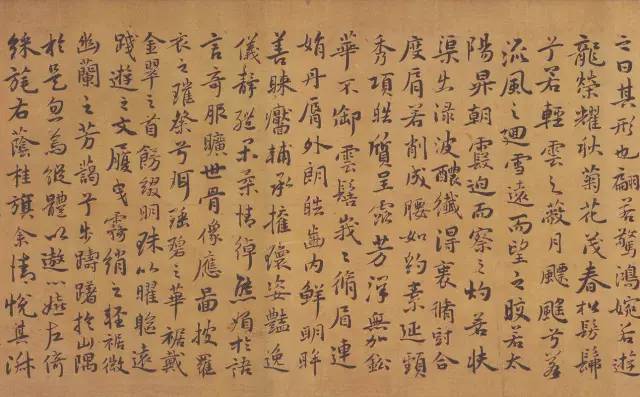 之曰其形也翩若驚鴻婉若遊
龍榮耀秋菊花茂春松髣髴
兮若輕雲之蔽月飄颻兮若
流風之迴雪遠而望之皎若太
陽昇朝霞迫而察之灼若芙
渠出淥波醲纖得衷脩短合
度肩若削成腰如約素延頸
秀項皓質呈露芳澤無加鈆
華不御雲髻峩〻脩眉連
娟丹脣外朗皓齒内鮮明眸
善睞靨輔承權瓌姿豔逸
儀靜體閑柔情綽態媚於語
言奇服曠世骨像應圖披羅
衣之璀粲兮珥瑤碧之華裾戴
金翠之首飾綴明珠以曜軀遠
踐遊之文履曳霧綃之輕裾微
幽蘭之芳藹兮步躊躇於山隅
於是忽焉縱體以遨以嬉左倚
綵旄右蔭桂旗余情悅其淑